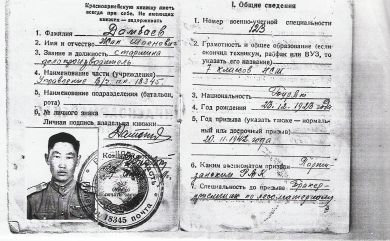 Красноармейскую книжку иметь
всегда при себе. Не имеющих
книжек — задерживать
1. Фамилия Дамбаев
2. Имя и отчество Жап
3. Звание и должность старшина
делопроизводитель
4. Наименование части (учреждения)
Управление в/ч пп. 18345
5. Наименование подразделения (батальон,
рота)
6. № личного знака
Личная подпись владельца книжки
18345 ПОЧТА
I. Общие сведения
1. Номер военно-учетной специальности
123
2. Грамотность и общее образование (если
окончил техникум, рабфак или ВУЗ, то
указать его название)
7 классов НСШ
3. Национальность
4. Год рождения 23.12.1923 года
5. Год призыва (также указать — нормаль-
ный или досрочный призыв)
20.11.1942 года
6. Каким военкоматом призван
РВК
Специальность до призыва Бракер-